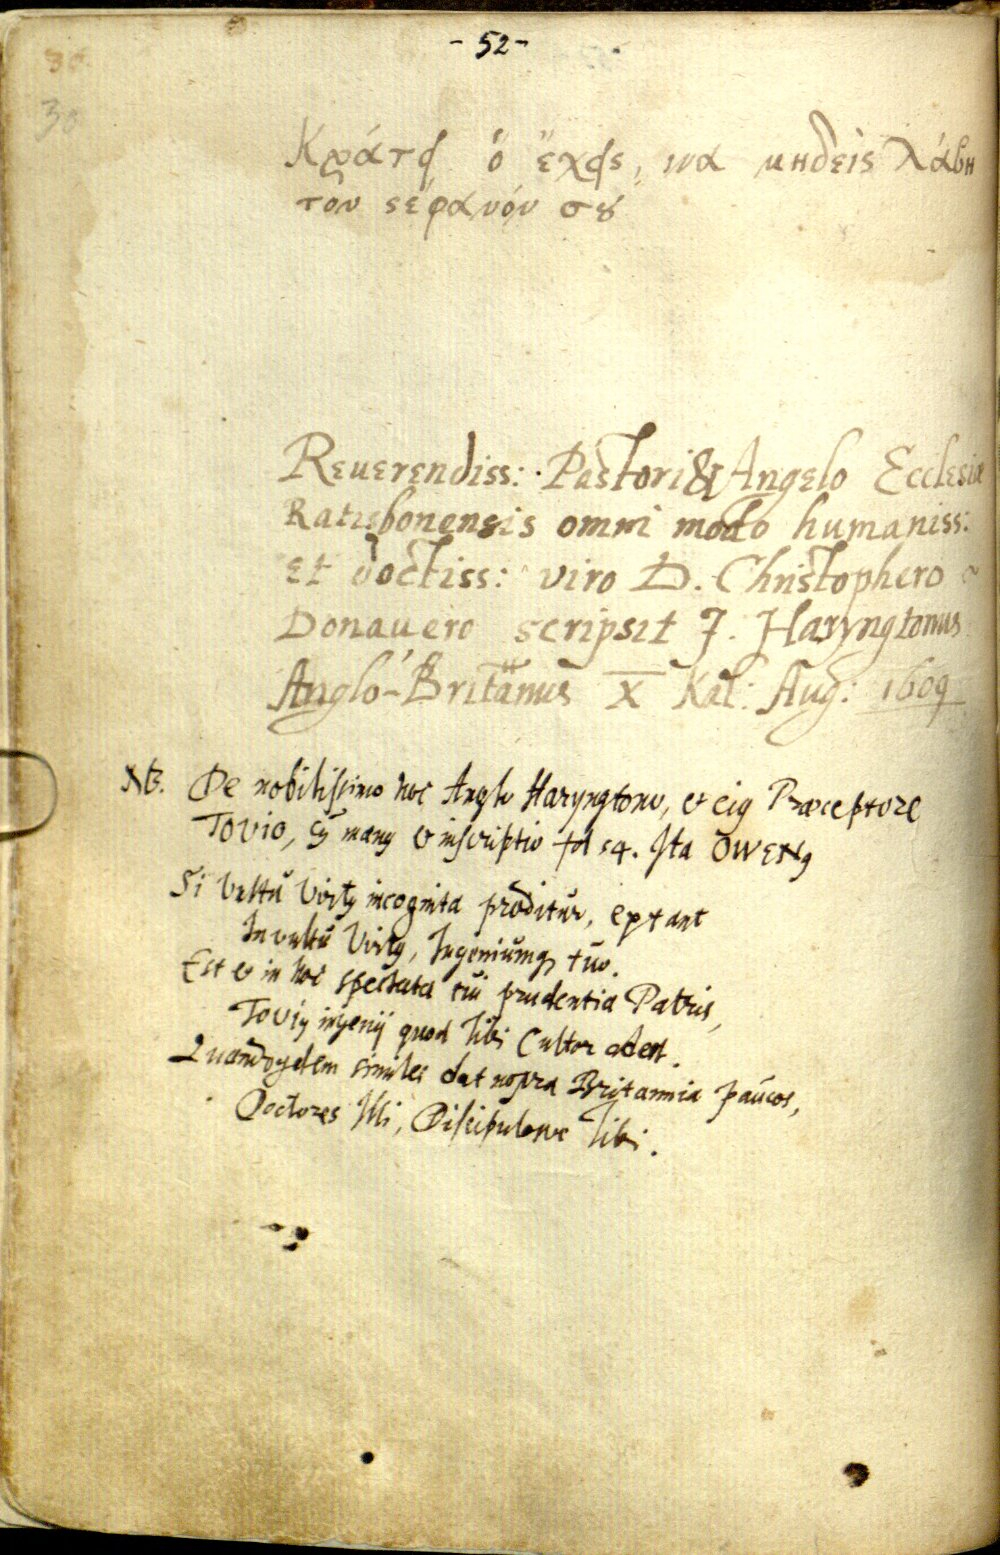 - 52 -
30
30
Κράτει ὃ ἔχεις, ινα μηδεις λάβη
τὸν ϛέφανόν σȣ
Reuerendiss: Pastori & Angelo Ecclesiæ
Ratisbonensis omni modo humaniss:
et doctiss: viro D. Christophero
Donauero scripsit J. Haryngtonus
Anglo-Britannus X Kal: Aug: 1609
NB. De nobilissimo hoc Anglo Haryngtono, et eiꝰ Præceptore
Tovio, manꝰ & inscriptio fol 54. Ita OWENꝰ
Si vultu Virtꝰ incognita proditur, extant
In vultu Virtꝰ, Ingeniumq tuo.
Est & in hoc spectata tui prudentia Patris,
Toviꝰ ingenij quod tibi Cultor adest.
Quandoqdem similes dat nostra Britannia paucos,
Doctores Illi, Discipulosve tibi.